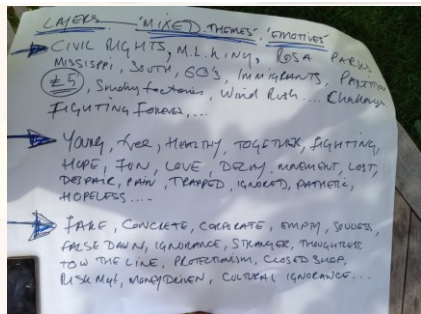 LAYERS 'MIXED THEMES' 'EMOTIVES'
CIVIL RIGHTS, M.L. KING, ROSA PARKS,
MISSISSIPI, SOUTH, 60'S, IMMIGRANTS,
£5, Smokey factories, Wind Rush.... Challenges
FIGHTING FOREVER,...
Young, free, HEALTHY, TOGETHER, FIGHTING,
HOPE, FUN, LOVE, DECAY, MOVEMENT, LOST,
DESPAIR, PAIN, TRAPPED, IGNORED, PATHETIC,
HOPELESS....
FAKE, CONCRETE, CORPORATE, EMPTY, SOULLESS,
FALSE DAWN, IGNORANCE, STRANGER, THOUGHTLESS
TOW THE LINE, PROTECTIONISM, CLOSED SHOP,
RISK MGT, MONEY DRIVEN, CULTURAL IGNORANCE...